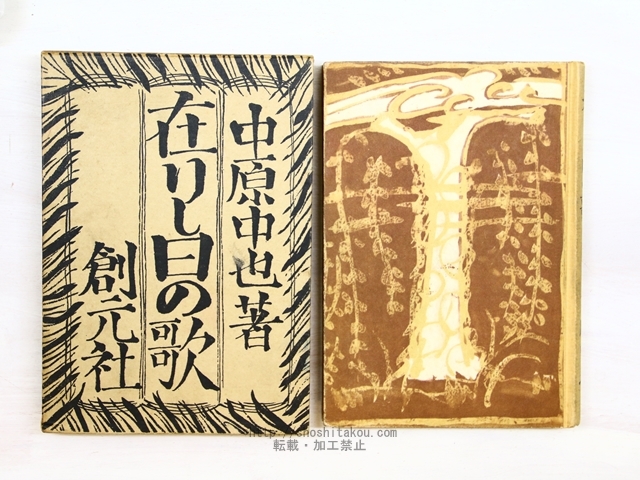 中原中也著
在りし日の歌
創元社
http://shoshitakou.com
転載・加工禁止